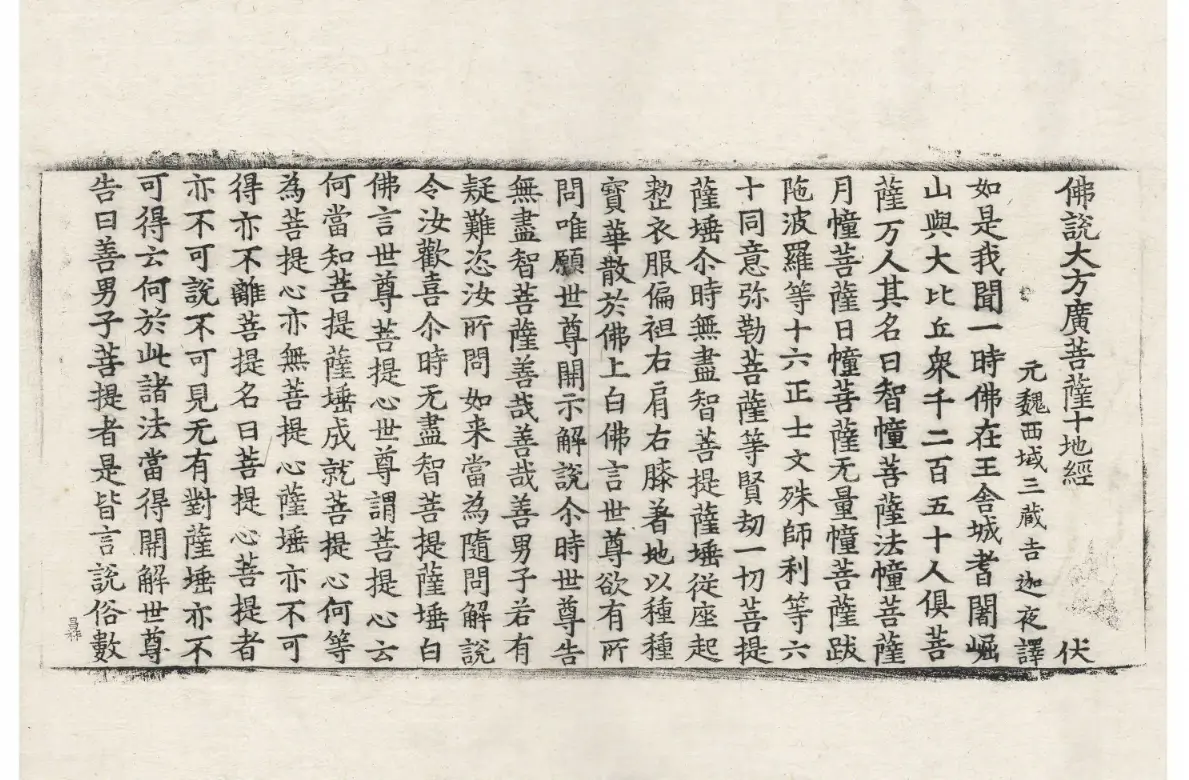 佛說大方廣菩薩十地經 伏
元魏西域三藏吉迦夜譯
如是我聞一時佛在王舍城耆闍崛
山與大比丘衆千二百五十人俱菩
薩万人其名曰智幢菩薩法幢菩薩
月幢菩薩日幢菩薩无量幢菩薩跋
陁波羅等十六正士文殊師利等六
十同意弥勒菩薩等賢劫一切菩提
薩埵尒時無盡智菩提薩埵從座起
整衣服偏袒右肩右膝著地以種種
寶華散於佛上白佛言世尊欲有所
問唯願世尊開示解說尒時世尊告
無盡智菩薩善哉善哉善男子若有
疑難恣汝所問如来當為隨問解說
令汝歡喜尒時无盡智菩提薩埵白
佛言世尊菩提心世尊謂菩提心云
何當知菩提薩埵成就菩提心何等
為菩提心亦無菩提心薩埵亦不可
得亦不離菩提名曰菩提心菩提者
亦不可說不可見无有對薩埵亦不
可得云何於此諸法當得開解世尊
告曰善男子菩提者是皆言說俗數